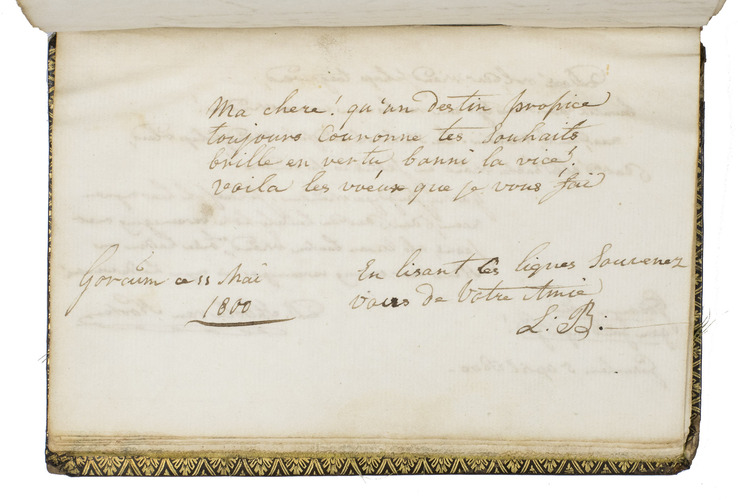 Ma chere! qu'un destin propice
toujours Couronne tes Souhaits
brille en vertu banni la vice!
voila les voéux que je vous fai
Gorcum ce 11 Mai
1800
En lisant ces lignes Souvenez
vous de Votre Amie
L: B: